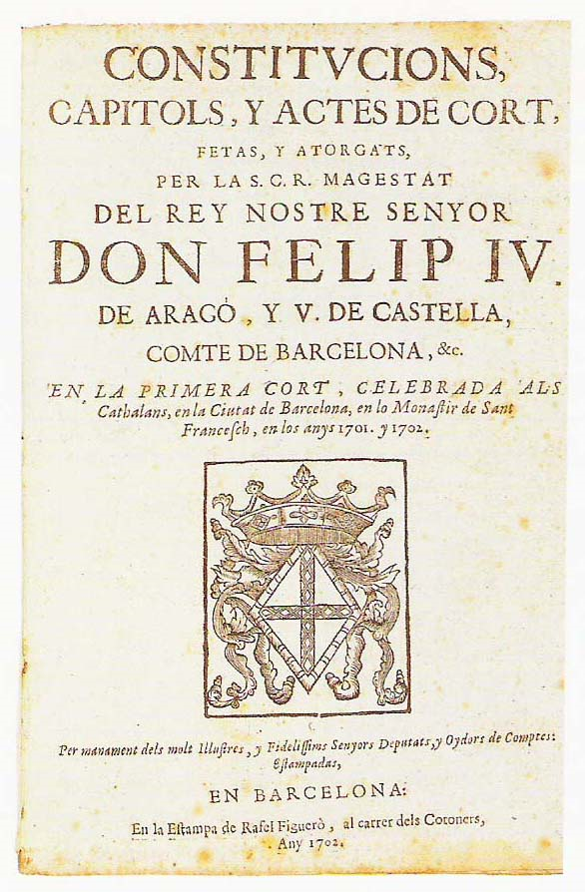 CONSTITVCIONS,
CAPITOLS, Y ACTES DE CORT,
FETAS, Y ATORGATS,
PER LA S. C. R. MAGESTAT
DEL REY NOSTRE SENYOR
DON FELIP IV.
DE ARAGÒ, Y V. DE CASTELLA,
COMTE DE BARCELONA, &c.
EN LA PRIMERA CORT, CELEBRADA ALS
Cathalans, en la Ciutat de Barcelona, en lo Monaſtir de Sant
Franceſch, en los anys 1701. y 1702.
Per manament dels molt Illuſtres, y Fideliſſims Senyors Deputats, y Oydors de Comptes:
Eſtampadas,
EN BARCELONA:
En la Eſtampa de Rafel Figuerò, al carrer dels Cotoners,
Any 1702.